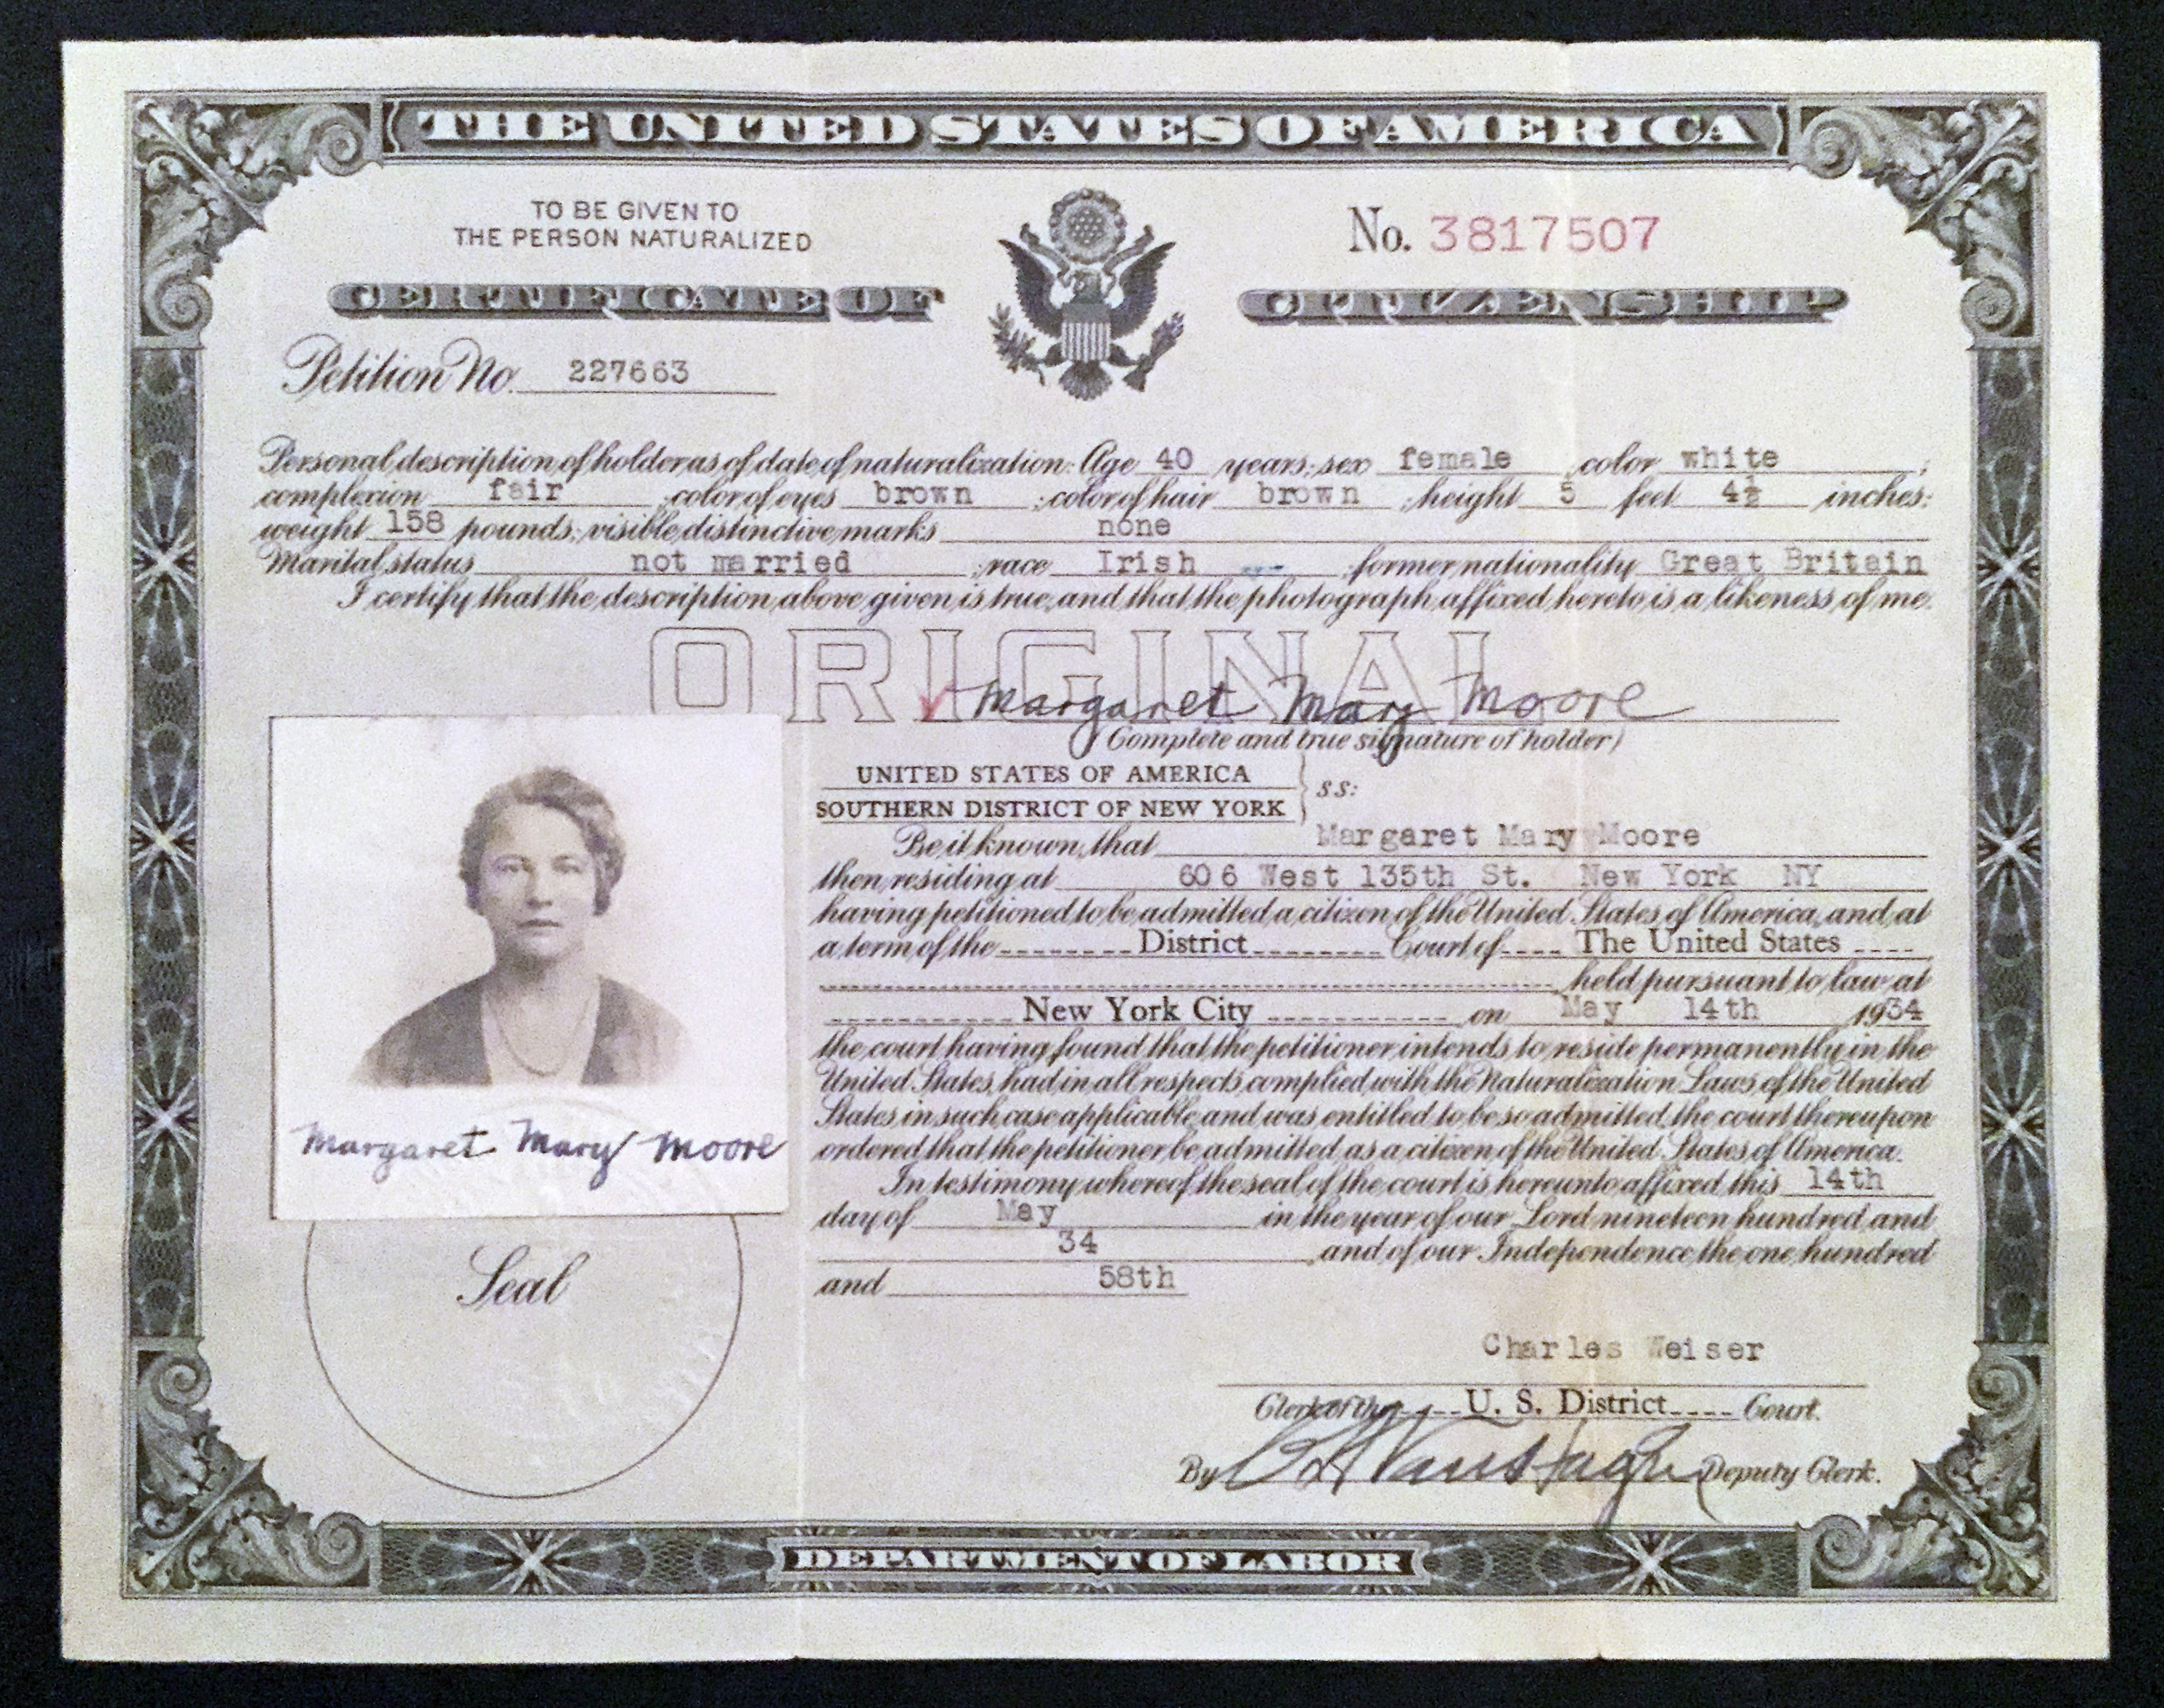 THE UNITED STATES OF AMERICA
TO BE GIVEN TO
THE PERSON NATURALIZED
No. 3817507
CERTIFICATE OF CITIZENSHIP
Petition No. 227663
Personal description of holder as of date of naturalization: Age 40 years; sex female color white ;
complexion fair ; color of eyes brown ; color of hair brown ; height 5 feet 4½ inches;
weight 158 pounds; visible distinctive marks none
Marital status not married ; race Irish ; former nationality Great Britain
I certify that the description above given is true, and that the photograph affixed hereto is a likeness of me.
ORIGINAL
Margaret Mary Moore
(Complete and true signature of holder)
UNITED STATES OF AMERICA
SOUTHERN DISTRICT OF NEW YORK } ss:
Be it known, that Margaret Mary Moore
then residing at 606 West 135th St. New York NY
having petitioned to be admitted a citizen of the United States of America, and at
a term of the District Court of The United States
held pursuant to law at
New York City on May 14th 1934
the court having found that the petitioner intends to reside permanently in the
United States, had in all respects complied with the Naturalization Laws of the United
States in such case applicable, and was entitled to be so admitted, the court thereupon
ordered that the petitioner be admitted as a citizen of the United States of America.
In testimony whereof the seal of the court is hereunto affixed this 14th
day of May in the year of our Lord nineteen hundred and
34 and of our Independence the one hundred
and 58th
Margaret Mary Moore
Seal
Charles Weiser
Clerk of the U. S. District Court.
By Deputy Clerk.
DEPARTMENT OF LABOR